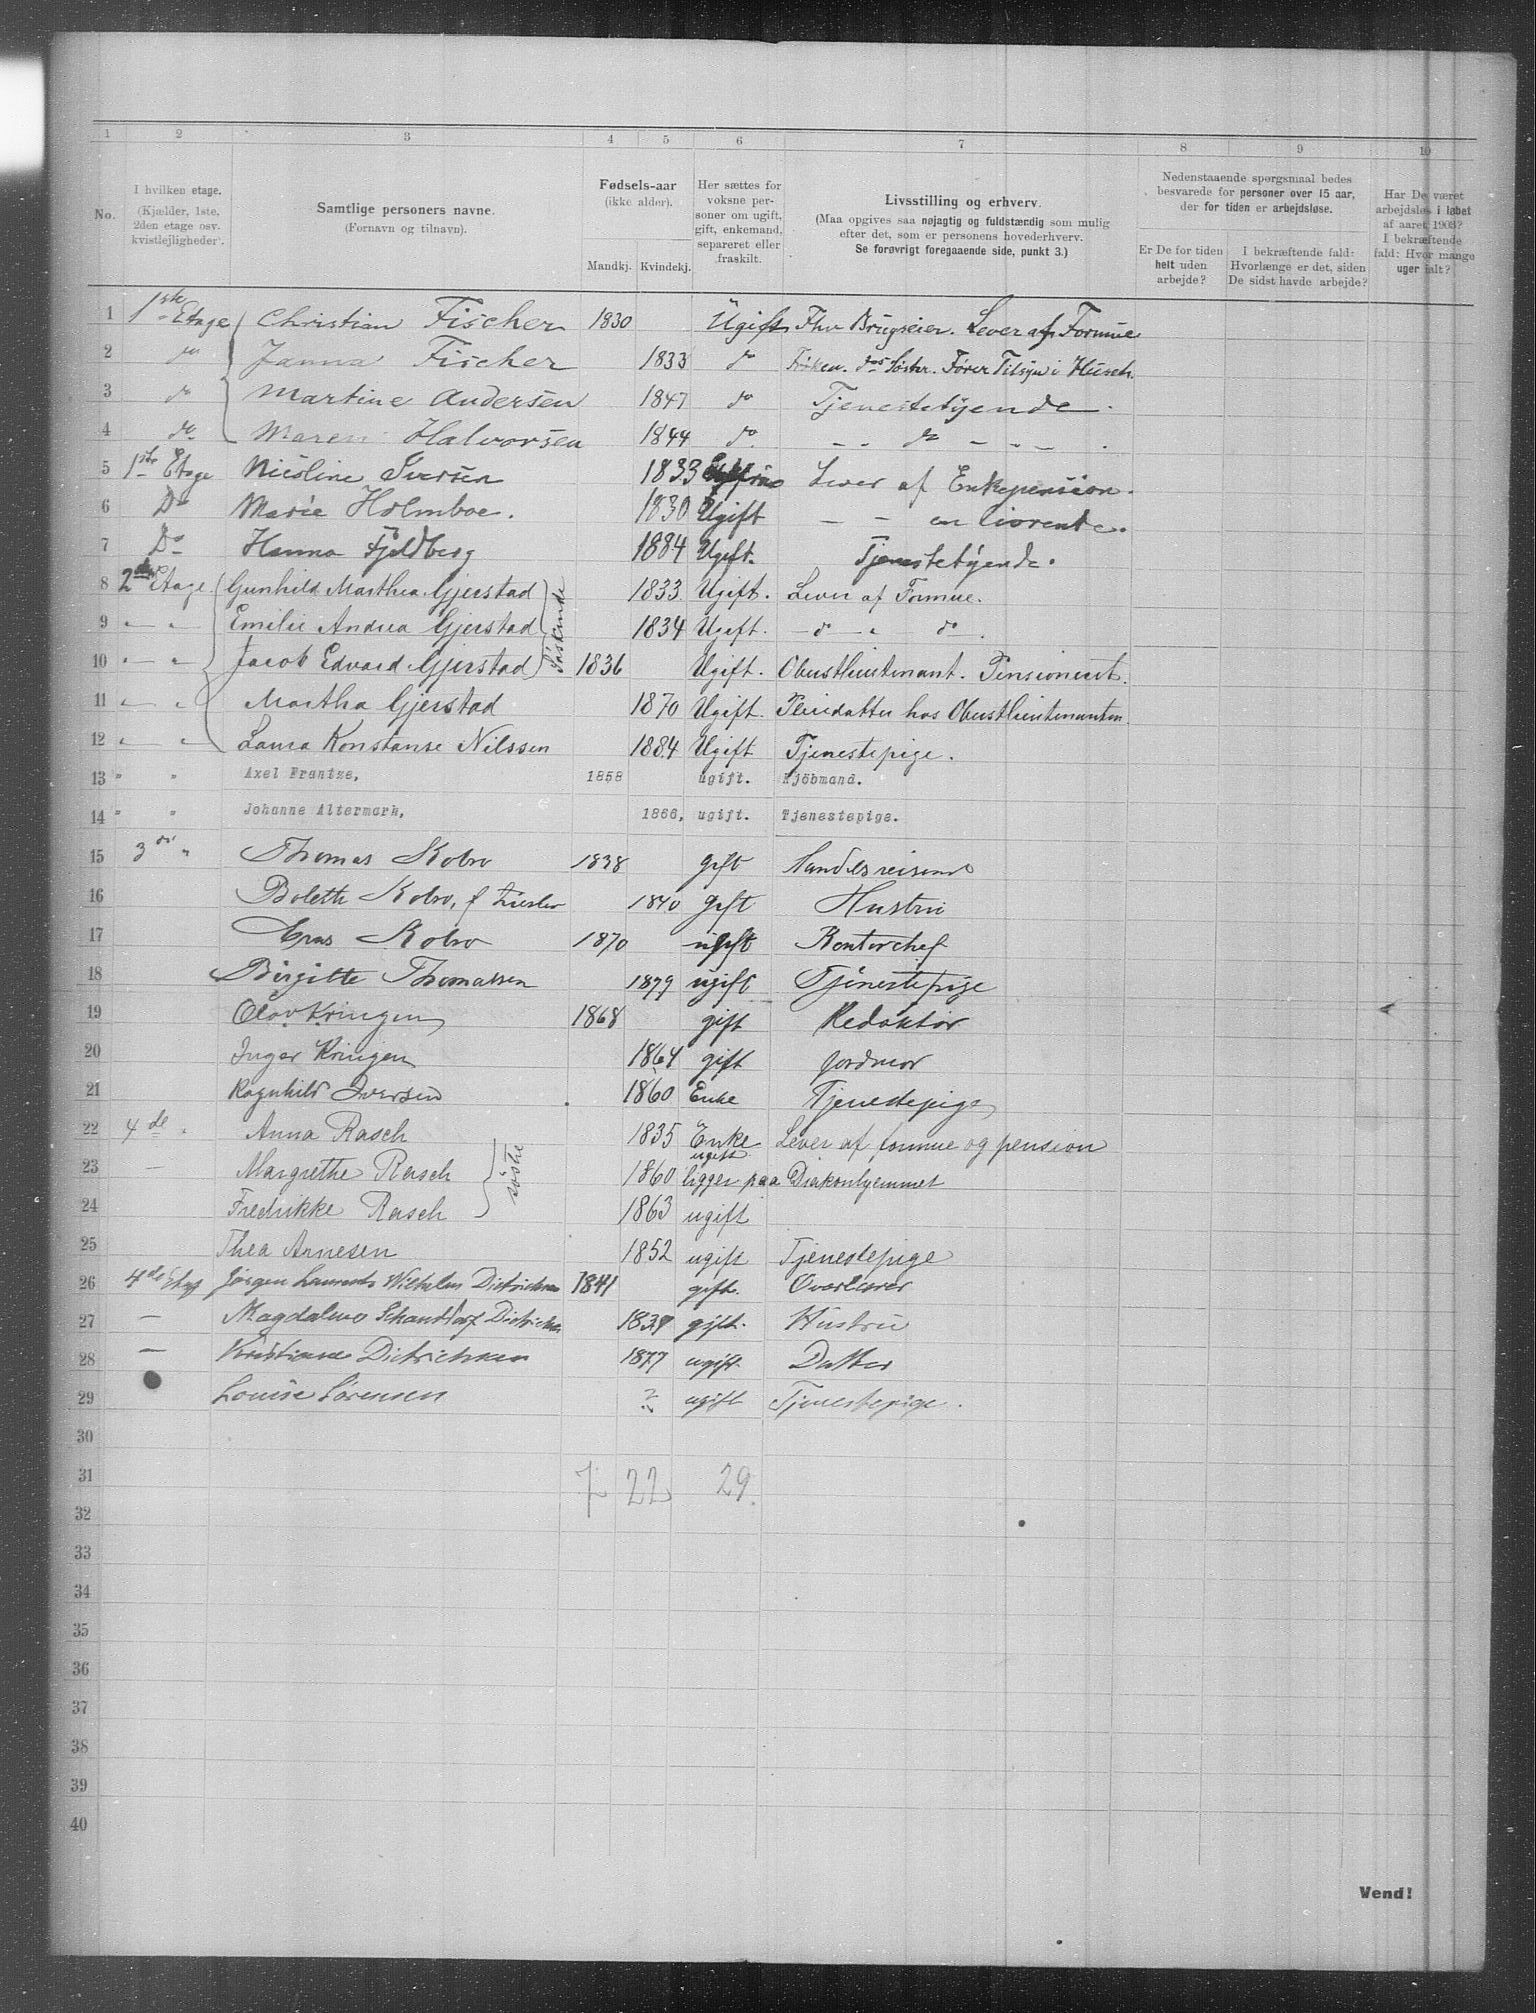 1 2 3 4 5 6 7 8 9 10
No.
I hvilken etage. (Kjælder, 1ste, 2den etage osv. kvistlejligheder).
Samtlige personers navne. (Fornavn og tilnavn).
Fødsels-aar (ikke alder).
Mandkj. Kvindekj.
Her sættes for voksne personer om ugift, gift, enkemand, separeret eller fraskilt.
Livsstilling og erhverv. (Maa opgives saa nøjagtig og fuldstændig som mulig efter det, som er personens hovederhverv. Se forøvrigt foregaaende side, punkt 3.)
Nedenstaaende spørgsmaal bedes besvarede for personer over 15 aar, der for tiden er arbejdsløse.
Er De for tiden helt uden arbejde?
I bekræftende fald: Hvorlænge er det, siden De sidst havde arbejde?
Har De været arbejdsløs i løbet af aaret 1903? I bekræftende fald: Hvor mange uger ialt?
1 1ste Etage Christian Fischer 1830 Ugift Fhv Brugseier. Lever af Formue
2 do Janna Fischer 1833 do Frøken. do's Søster. Fører Tilsyn i Huset.
3 do Martine Andersen 1847 do Tjenestetyende.
4 do Maren Halvorsen 1844 do - - do - - -
5 1ste Etage Nicoline Iversen 1833 Lever af Enkepension.
6 Do Marie Holmboe. 1830 Ugift - - en livrente.
7 Do Hanna Fjeldberg 1884 Ugift. Tjenestetyende.
8 2den Etage Gunhild Marthea Gjerstad 1833 Ugift. Lever af Formue.
9 " - " Emilie Andrea Gjerstad Søskende 1834 Ugift. - do - " do -.
10 " - " Jacob Edvard Gjerstad 1836 Ugift. Oberstlieutenant. Pensioneret.
11 " - " Martha Gjerstad 1870 Ugift. Pleiedatter hos Oberstlieutenanten
12 " " Laura Konstanse Nilssen 1884 Ugift Tjenestepige.
13 " " Axel Frantze, 1858 ugift. Kjöbmand.
14 " " Johanne Altermark, 1866, ugift. Tjenestepige.
15 3die " Thomas Kobro 1838 gift Handelsreisende
16 Boleth Kobro, f. 1840 gift Hustru
17 Kobro 1870 ugift Kontorchef
18 Birgitte Thomassen 1879 ugift Tjenestepige
19 Olav Kringen 1868 gift Redaktør
20 Inger Kringen 1864 gift Jordmor
21 Ragnhild Iversen 1860 Enke Tjenestepige
22 4de " Anna Rasch 1835 Enke Lever af formue og pension
23 - Margrethe Rasch søstre 1860 ugift ligger paa Diakonhjemmet
24 Fredrikke Rasch 1863 ugift
25 Thea Arnesen 1852 ugift Tjenestepige
26 4de Etag Jørgen Laurents Wilhelm Dietrichson 1841 gift. Overlærer
27 - Magdalene Dietrichson 1839 gift. Hustru
28 - Kristiane Dietrichson 1877 ugift Datter
29 Louise Sørensen ? ugift Tjenestepige.
30
31 7 22 29.
32
33
34
35
36
37
38
39
40
Vend!